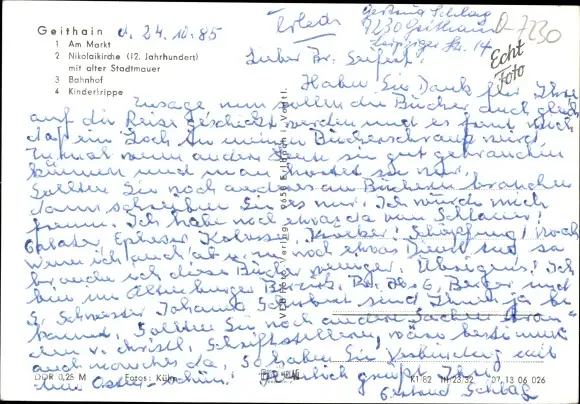 Geithain d. 24.10.85
1 Am Markt
2 Nikolaikirche (12. Jahrhundert)
mit alter Stadtmauer
3 Bahnhof
4 Kinderkrippe
Gertrud Schlag
7230 Geithain
Leipziger Str. 14
D-7230
Echt
Foto
Lieber Br. Seifert!
Haben Sie Dank für Ihre
Zusage nun sollen die Bücher auch gleich
auf die Reise geschickt werden und es freut mich
daß ein Loch in meinen Bücherschrank wird.
Zumal wenn andere Leute sie gut gebrauchen
können und man
Sollten Sie noch anderes an Büchern brauchen
dann schreiben Sie es nur. Ich würde mich
freuen. Ich habe noch etwas da von Schlatter!
Galater, Epheser Kolosser, Schöpfung! noch
wenn ich auch ab u. zu noch etwas Dienst tue so
brauche ich diese Bücher weniger. Übrigens! Ich
bin im Altenburger Bezirk, Br.
S. Schwester Johanna sind Ihnen ja be-
kannt. Sollten Sie noch andere Sachen
v. christl. Schriftstellern, wäre bestimmt
auch manches da. So haben Sie Verbindung mit
Herzlich grüßt Ihre
Gertrud Schlag
VEB Foto-Verlag 9650 Erlbach i. Vogtl.
DDR 0,25 M Fotos: Kühn
K1 82 III 23 32 07 13 06 026